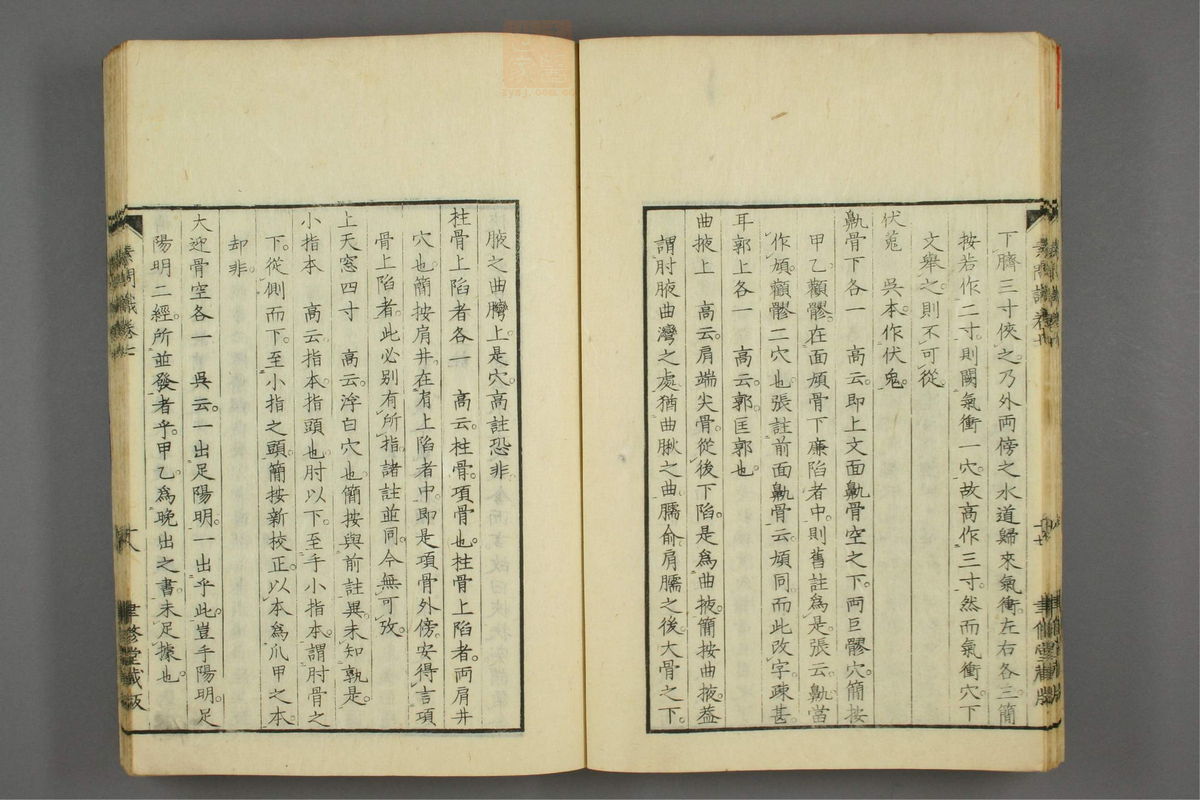 下臍三寸俠之乃外両傍之水道歸来氣衝左右各三簡
按若作二寸則闕氣衝一穴故高作三寸然而氣衝穴下
文舉之則不可從
伏菟　吳本作伏兔
鼽骨下各一　高云即上文面鼽骨空之下両巨髎穴簡按
甲乙顴髎在面頄骨下廉陷者中則舊註為是張云鼽當
作頄顴髎二穴也張註前面鼽骨云頄同而此改字疎甚
耳郭上各一　高云郭匡郭也
曲掖上　高云肩端尖骨從後下陷是爲曲掖簡按曲掖蓋
謂肘腋曲灣之處猶曲脉之曲臑俞肩臑之後大骨之下
腋之曲臑上是穴高註恐非
柱骨上陷者各一　高云柱骨項骨也柱骨上陷者両肩井
穴也簡按肩井在肩上陷者中即是項骨外傍安得言項
骨上陷者此必别有所指諸註並同今無可攷
上天窓四寸　高云浮白穴也簡按與前註異未知孰是
小指本　高云指本指頭也肘以下至手小指本謂肘骨之
下從側而下至小指之頭簡按新校正以本為爪甲之本
却非
大迎骨空各一　吳云一出足陽明一出乎此豈手陽明足
陽明二經所並發者乎甲乙爲晚出之書未足據也
素問識卷七
聿修堂藏版